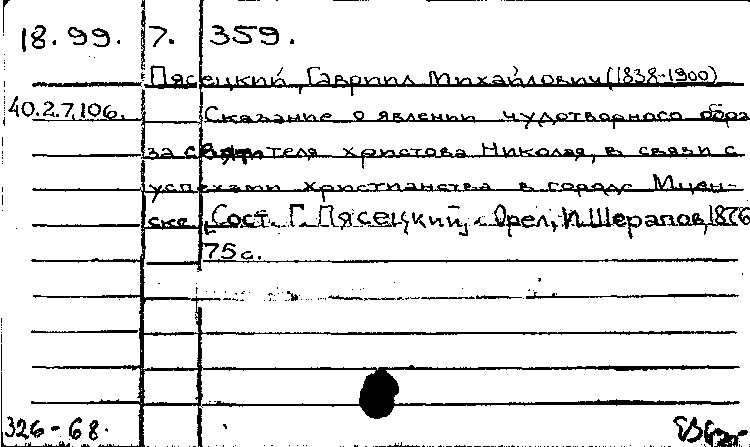 18. 99. 7. 359.
Пясецкий, Гавриил Михайлович (1838-1900)
40.2.7.106. Сказание о явлении чудотворного обра
за святителя христова Николая, в связи с
успехами христианства в городе Мцен-
ске, Сост. Г. Пясецкий, - Орел, И. Шерапов, 1876
75 с.
326-68.